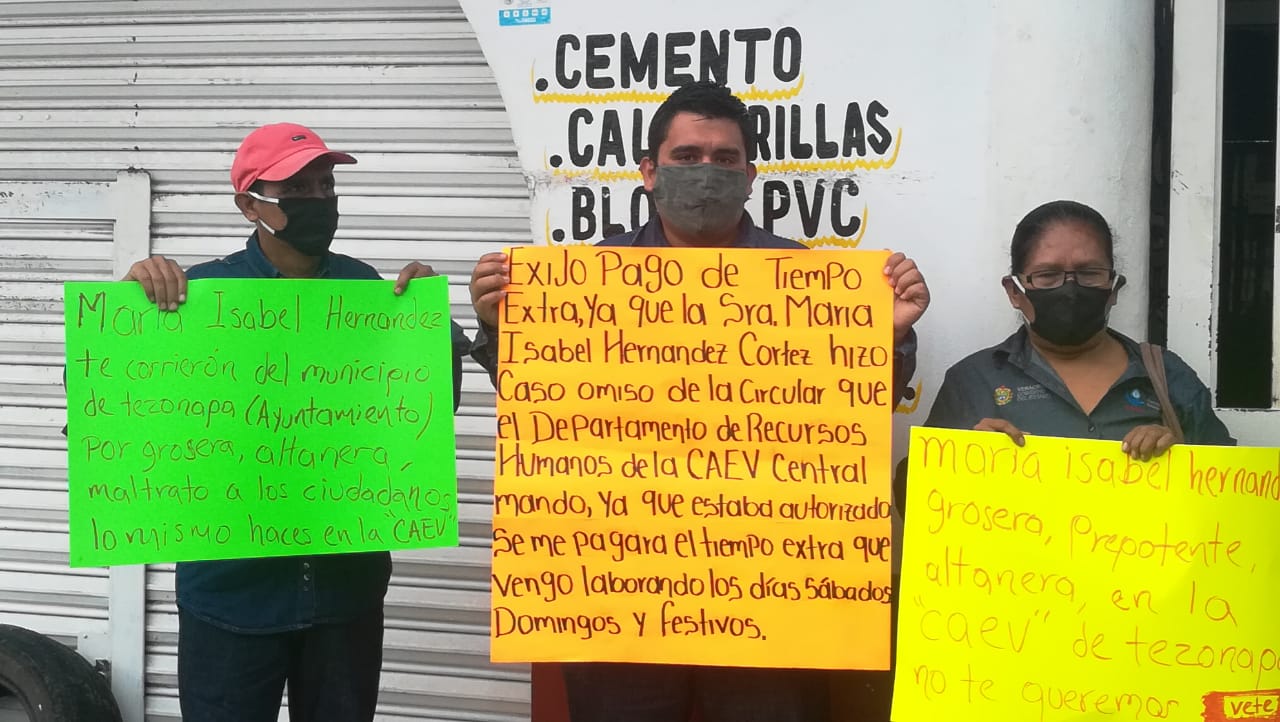 .CEMENTO
.CAL RILLAS
.BLO PVC
Maria Isabel Hernandez
te corrierón del municipio
de tezonapa (Ayuntamiento)
Por grosera, altanera,
maltrato a los ciudadanos
lo mismo haces en la "CAEV"
Exijo Pago de Tiempo
Extra, Ya que la Sra. Maria
Isabel Hernandez Cortez hizo
Caso omiso de la Circular que
el Departamento de Recursos
Humanos de la CAEV Central
mando, Ya que estaba autorizado
Se me pagara el tiempo extra que
vengo laborando los días Sábados
Domingos y Festivos.
maria isabel hernand
grosera, Prepotente,
altanera, en la
"caev" de tezonapa
no te queremos vete